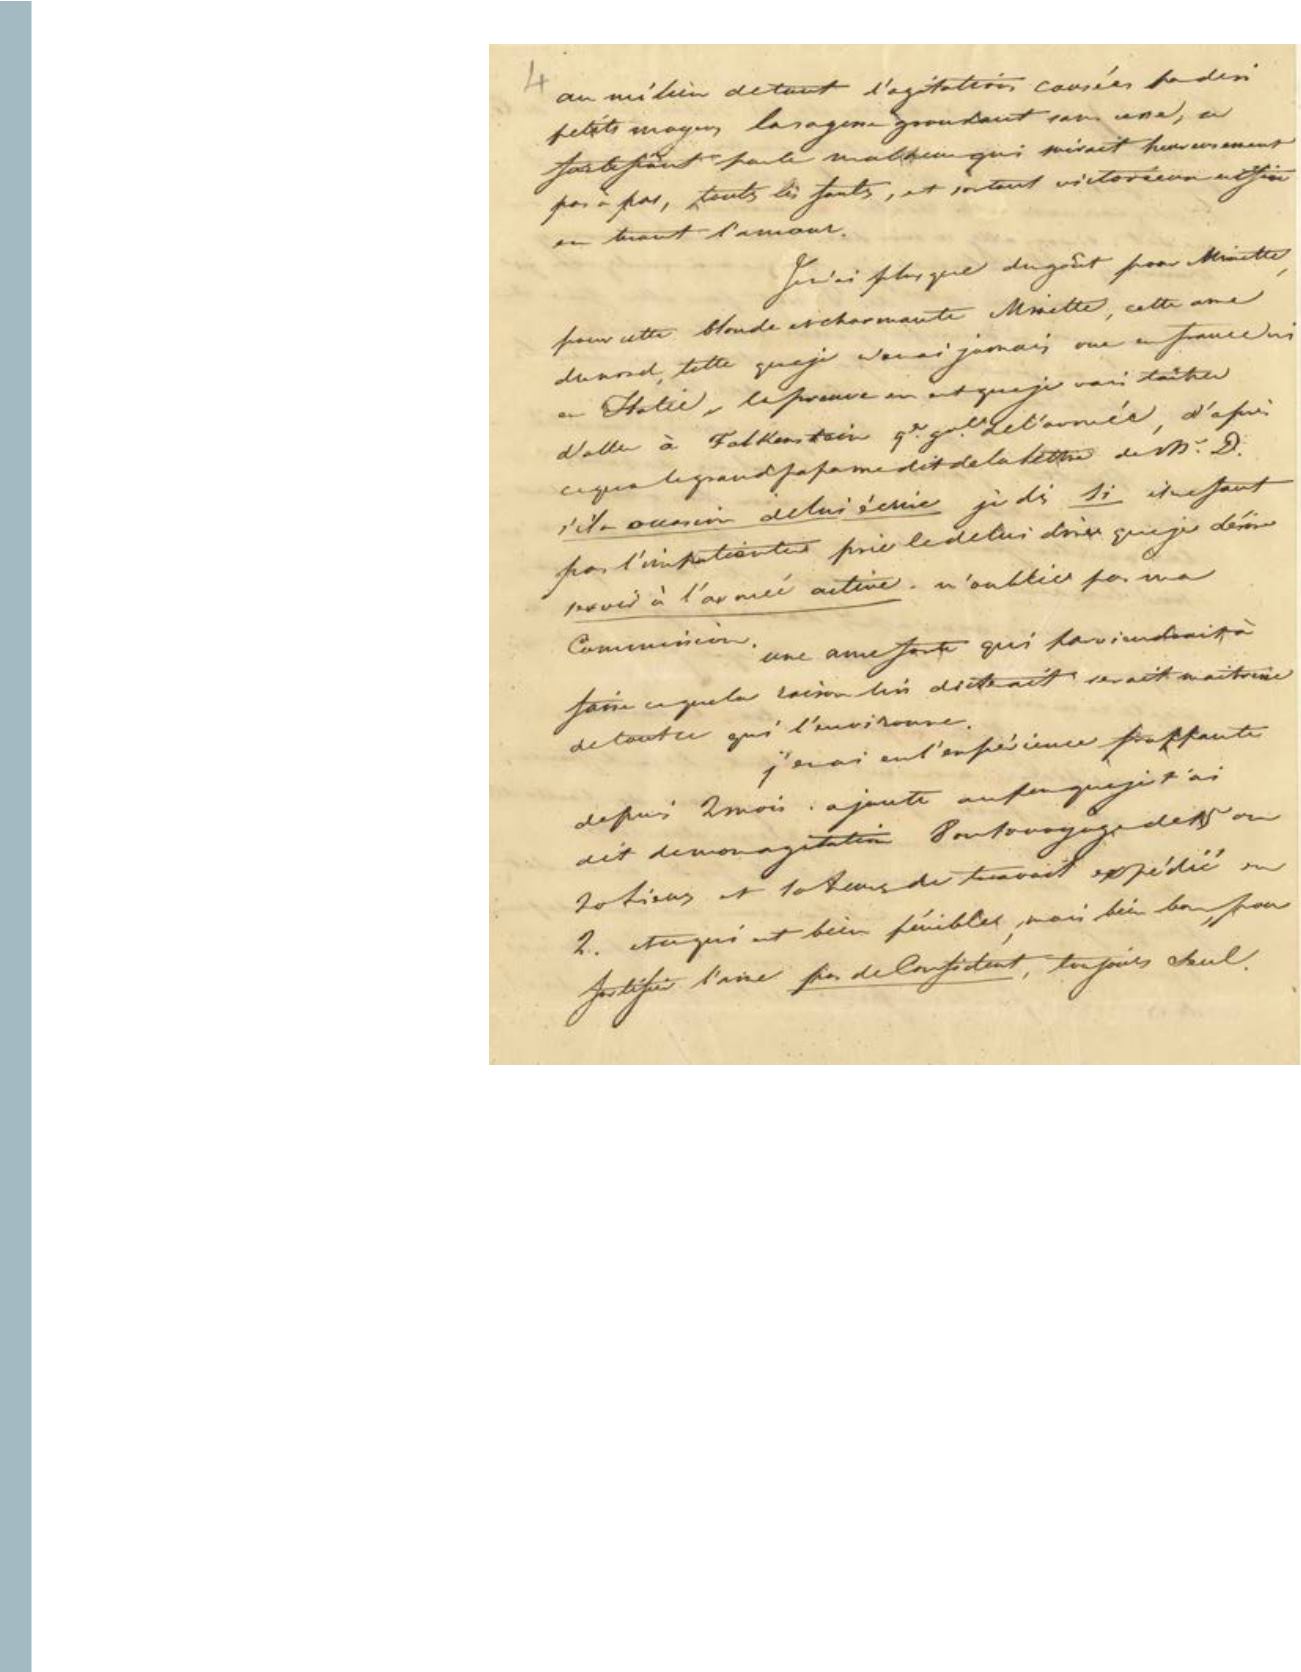 4
au milieu de tant d'agitations causées par des si
petits moyens la sagesse grondant sans cesse, se
fortifiant par le malheur qui suivait heureusement
pas à pas, toutes les fautes, et sortant victorieuse enfin
en tuant l'amour.
J'en ai plus que du goût pour Minette,
pour cette blonde et charmante Minette, cette ame
du nord, telle que je n'en ai jamais vue en france ni
en Italie, la preuve en est que je vais tâcher
d'aller à Falkenstein qr gal de l'armée, d'après
ce que le grand papa me dit de la lettre de Mr. D.
s'il a occasion de lui écrire je dis si il ne faut
pas l'impatienter prie le de lui dire que je désire
servir à l'armée active. n'oublie pas ma
Commission. une ame forte qui parviendrait à
faire ce que la raison lui dicterait serait maitresse
de tout ce qui l'environne.
j'en ai eu l'expérience frappante
depuis 2 mois. ajoute au peu que je t'ai
dit de mon agitation voyage de 15 ou
20 lieues et 10 heures de travail expédié en
2. ce qui est bien pénible, mais bien bon pour
fortifier l'ame pas de Confident, toujours seul.